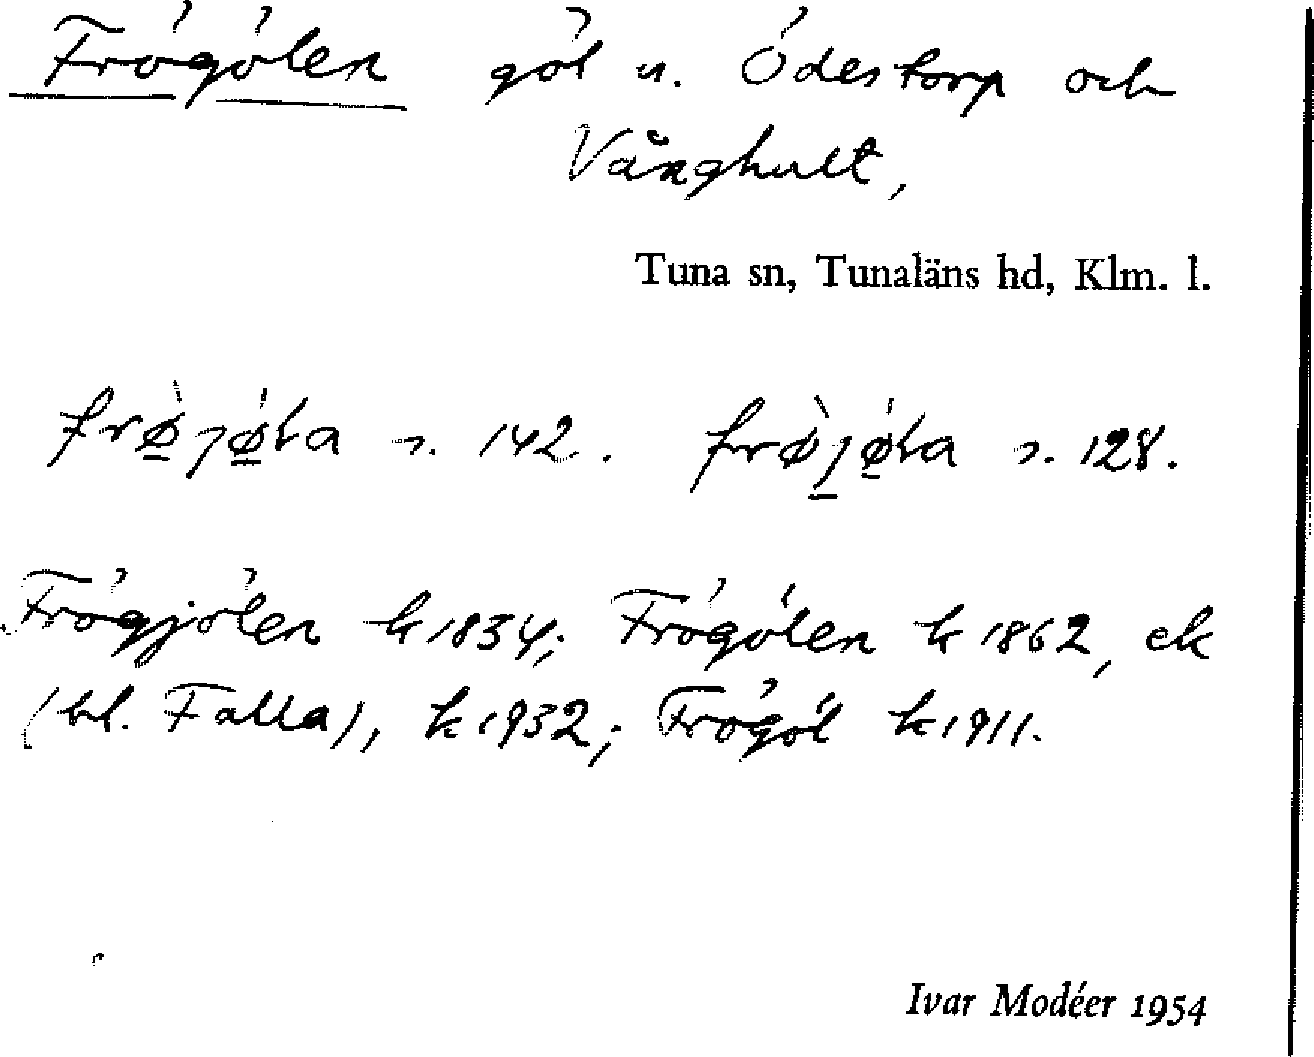 Frögölen göl u. Ödestorp och
Vånghult,
Tuna sn, Tunaläns hd, Klm. l.
frø̀jǿla s. 142. frø̀jǿla s. 128.
Frögjölen k 1834; Frögölen k 1862, ek
(bl. Falla), k 1932; Frögöl k 1911.
Ivar Modéer 1954